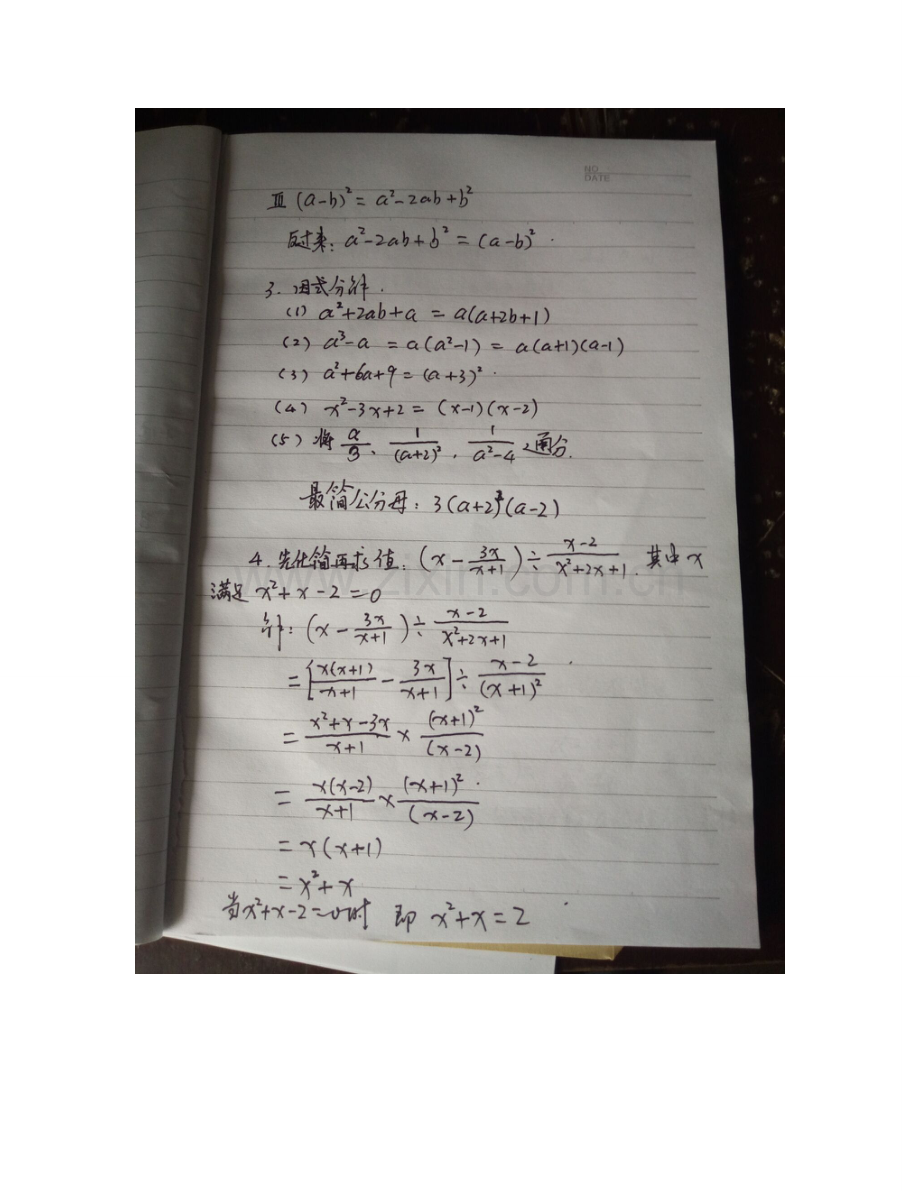 NO
DATE
Ⅲ (a-b)² = a²-2ab+b²
反过来: a²-2ab+b² = (a-b)².
3. 因式分解.
(1) a²+2ab+a = a(a+2b+1)
(2) a³-a = a(a²-1) = a(a+1)(a-1)
(3) a²+6a+9 = (a+3)².
(4) x²-3x+2 = (x-1)(x-2)
(5) 将 a/3、1/(a+2)²,1/(a²-4) 通分.
最简公分母: 3(a+2)²(a-2)
4. 先化简再求值: (x - 3x/(x+1)) ÷ (x-2)/(x²+2x+1). 其中 x
满足 x²+x-2=0
解: (x - 3x/(x+1)) ÷ (x-2)/(x²+2x+1)
= [x(x+1)/(x+1) - 3x/(x+1)] ÷ (x-2)/(x+1)²
= (x²+x-3x)/(x+1) × (x+1)²/(x-2)
= x(x-2)/(x+1) × (x+1)²/(x-2)
= x(x+1)
= x²+x
当x²+x-2=0时 即 x²+x=2